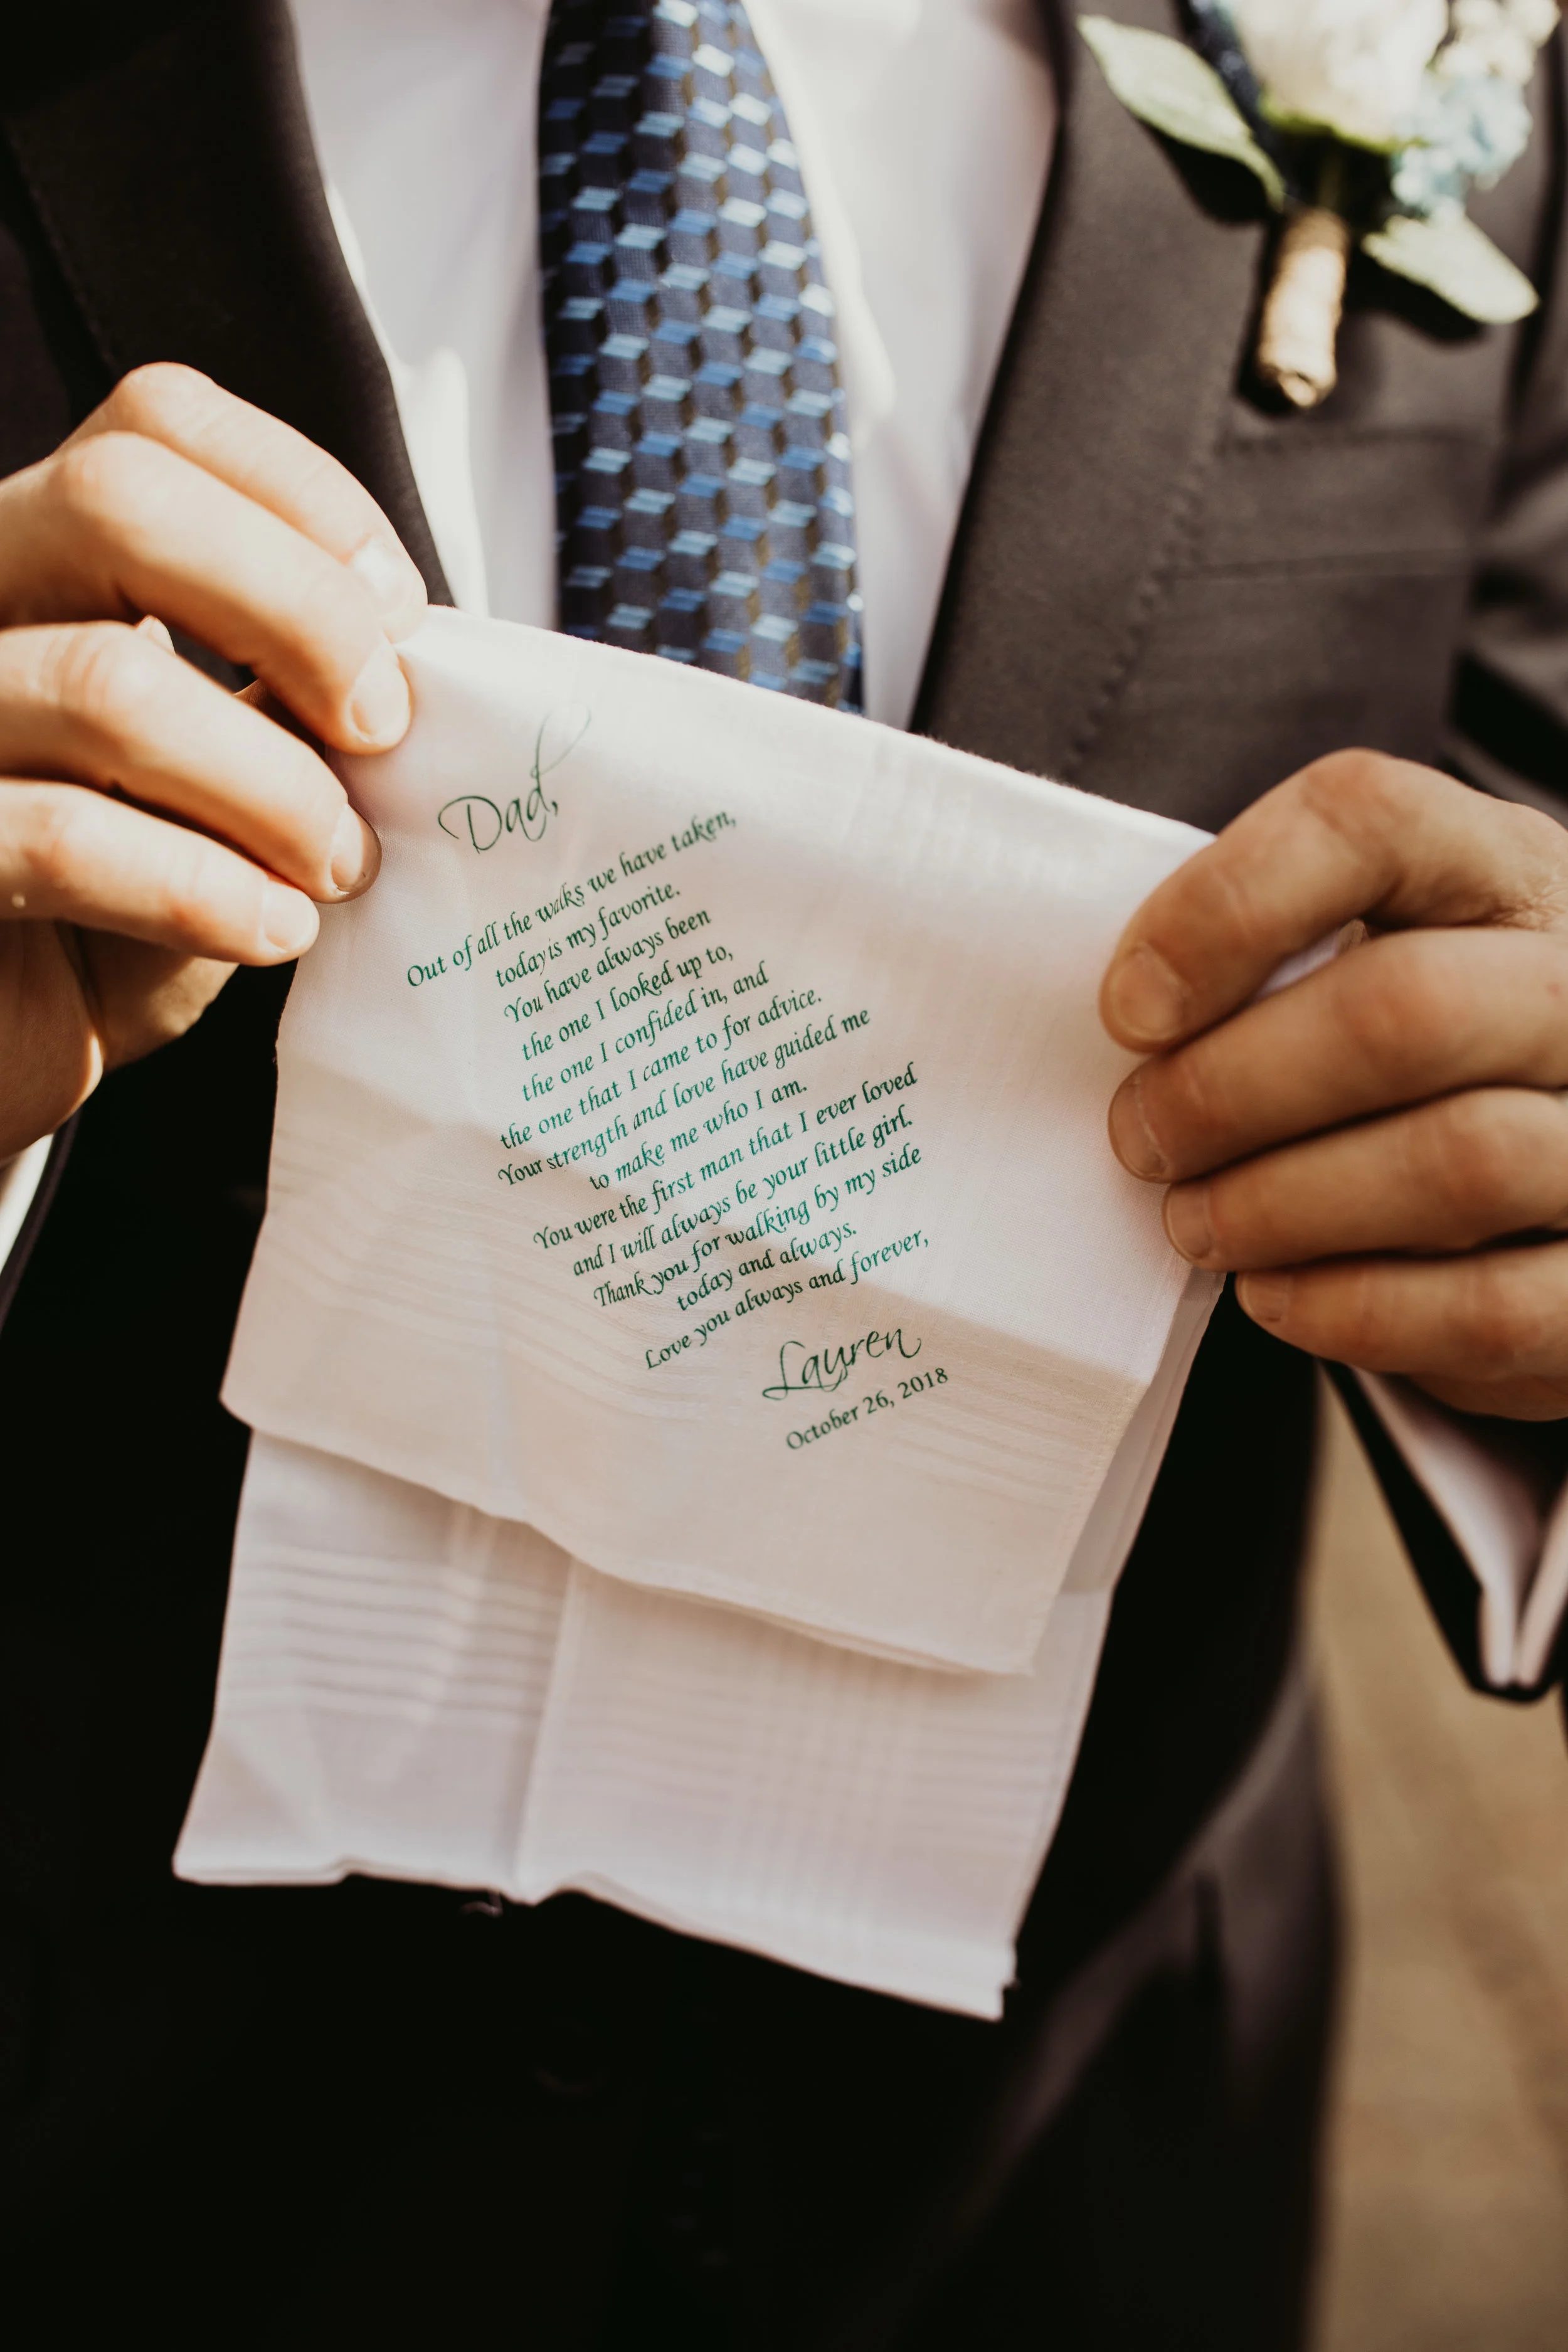 Dad,
Out of all the walks we have taken,
today is my favorite.
You have always been
the one I looked up to,
the one I confided in, and
the one that I came to for advice.
Your strength and love have guided me
to make me who I am.
You were the first man that I ever loved
and I will always be your little girl.
Thank you for walking by my side
today and always.
Love you always and forever,
Lauren
October 26, 2018